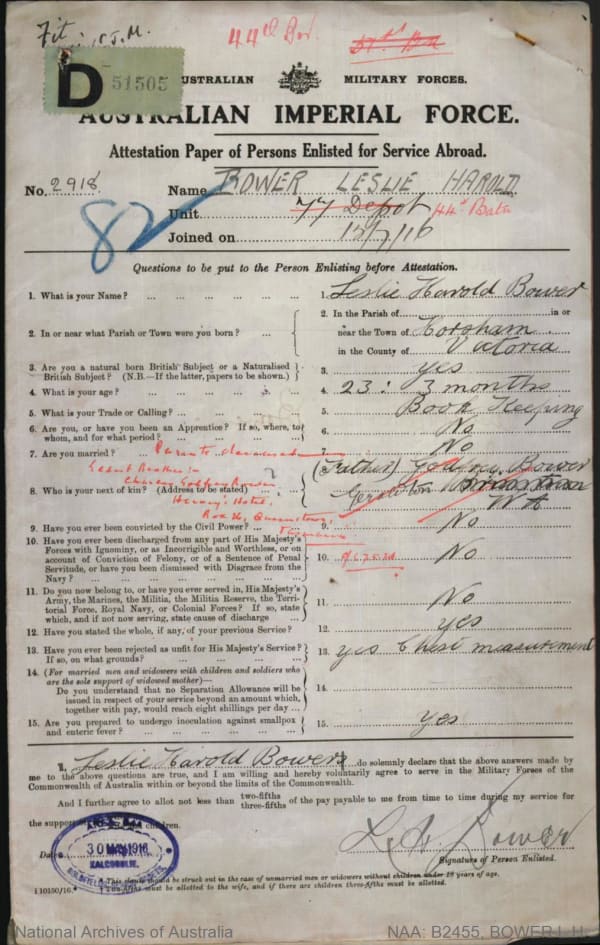 Fit
44th Bn.
D 51505
AUSTRALIAN MILITARY FORCES.
AUSTRALIAN IMPERIAL FORCE.
Attestation Paper of Persons Enlisted for Service Abroad.
No. 2918 Name BOWER LESLIE HAROLD
Unit 77 Depot 44th Batn
Joined on 15/7/16
82
Questions to be put to the Person Enlisting before Attestation.
1. What is your Name? 1. Leslie Harold Bower
2. In or near what Parish or Town were you born? 2. In the Parish of in or
near the Town of Horsham
in the County of Victoria
3. Are you a natural born British Subject or a Naturalised
British Subject? (N.B.—If the latter, papers to be shown.) 3. yes
4. What is your age? 4. 23: 3 months
5. What is your Trade or Calling? 5. Book Keeping
6. Are you, or have you been an Apprentice? If so, where, to
whom, and for what period? 6. No
7. Are you married? 7. No
Parents deceased
Eldest Brother:-
Charles Godfrey Bower
Hotel,
Queenstown,
Tasmania
8. Who is your next of kin? (Address to be stated) 8. (Father) Godfrey Bower
Geraldton
WA
9. Have you ever been convicted by the Civil Power? 9. No
10. Have you ever been discharged from any part of His Majesty's
Forces with Ignominy, or as Incorrigible and Worthless, or on
account of Conviction of Felony, or of a Sentence of Penal
Servitude, or have you been Dismissed with Disgrace from the
Navy? 10. No
11. Do you now belong to, or have you ever served in, His Majesty's
Army, the Marines, the Militia, the Militia Reserve, the Terri-
torial Force, Royal Navy, or Colonial Forces? If so, state
which, and if not now serving, state cause of discharge 11. No
12. Have you stated the whole, if any, of your previous Service? 12. yes
13. Have you ever been rejected as unfit for His Majesty's Service?
If so, on what grounds? 13. yes Chest measurment
14. (For married men and widowers with children and soldiers who
are the sole support of widowed mother)—
Do you understand that no Separation Allowance will be
issued in respect of your service beyond an amount which,
together with pay, would reach eight shillings per day 14.
15. Are you prepared to undergo inoculation against smallpox
and enteric fever? 15. yes
I, Leslie Harold Bower do solemnly declare that the above answers made by
me to the above questions are true, and I am willing and hereby voluntarily agree to serve in the Military Forces of the
Commonwealth of Australia within or beyond the limits of the Commonwealth.
And I further agree to allot not less than two-fifths
three-fifths of the pay payable to me from time to time during my service for
the support children.
Date 30 MAY 1916
KALGOORLIE.
L H Bower
Signature of Person Enlisted.
* This clause should be struck out in the case of unmarried men or widowers without children under 18 years of age.
† Two-fifths must be allotted to the wife, and if there are children three-fifths must be allotted.
National Archives of Australia NAA: B2455, BOWER L H